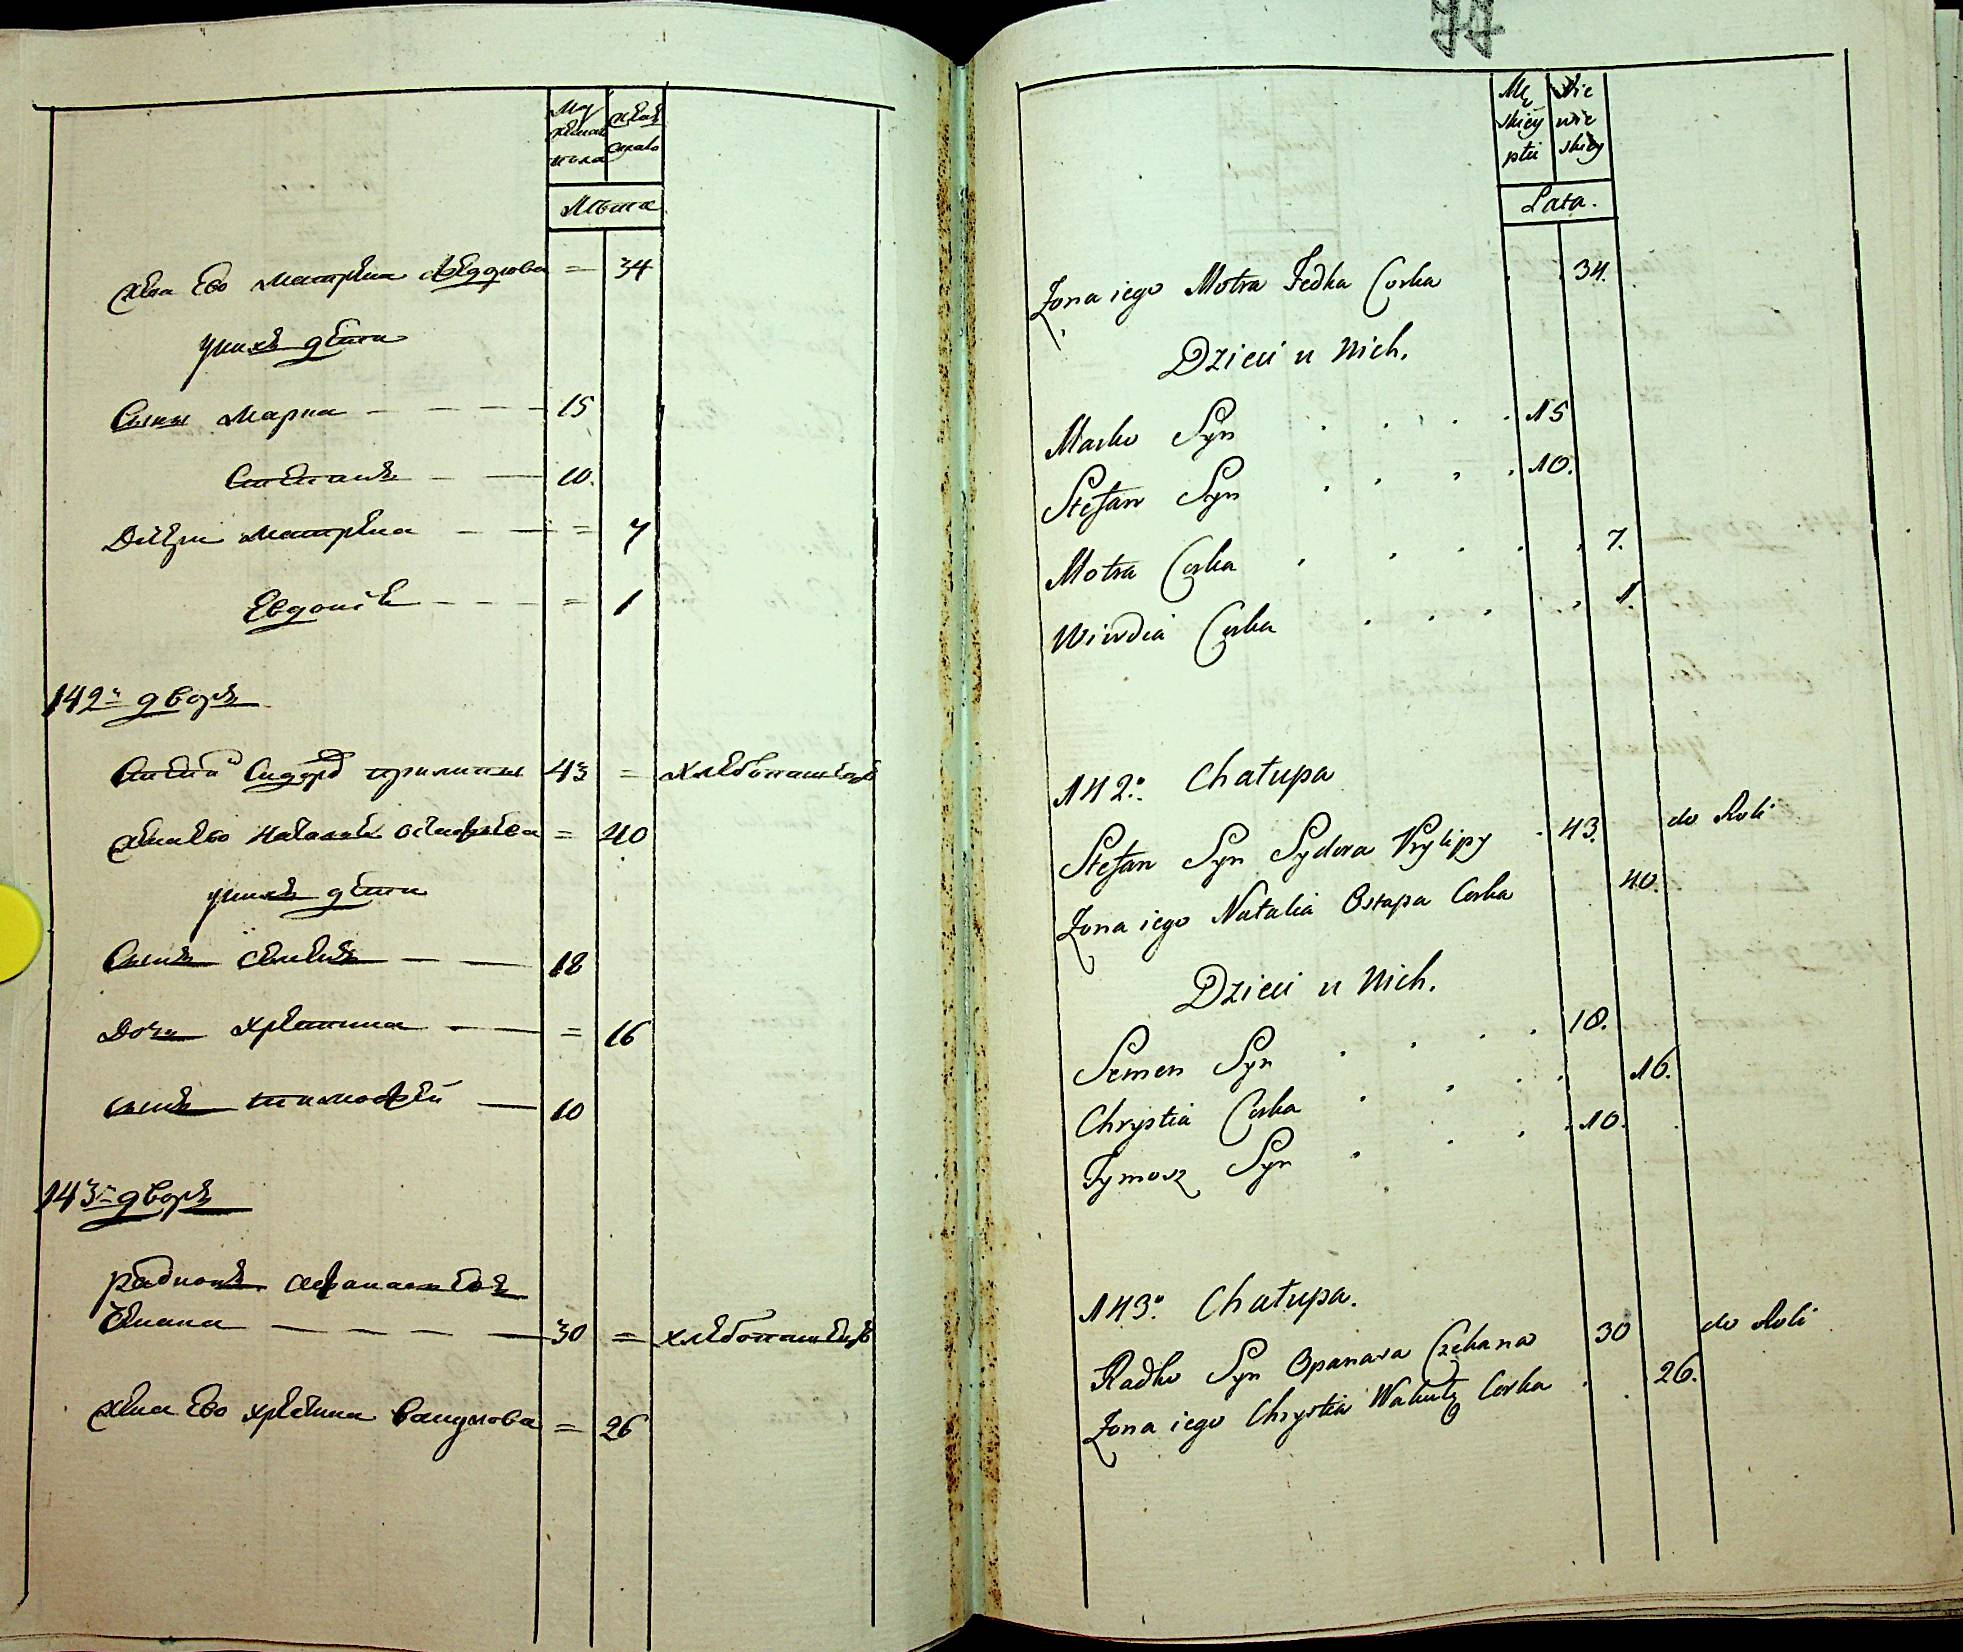 Му жеска пола
женскаго
Лѣта
жена Ево Матрена Ѳедорова = 34
у них дѣти
Сыны Марко 15
Степанъ 10.
Дочери Матрена = 7
Евдокія = 1
142й дворъ
43 = хлебопашецъ
жена Ево Наталия = 40
у них дѣти
Сынъ Семенъ 18
Дочь Христина = 16
сынъ Тимофей 10
143й дворъ
Радионъ Афанасьевъ
Чекана 30 = хлебопашецъ
жена Ево Христина = 26
77
Mę skiey płci
Nie wie skiey
Lata.
Żona iego Motra Fedka Corka 34.
Dzieci u Nich.
Marko Syn 15
Stefan Syn 10.
Motra Corka 7.
Corka 1.
142o. Chałupa
Stefan Syn Sydora Prylipy 43. do Roli
Żona iego Natalia Ostapa Corka 40.
Dzieci u Nich.
Semen Syn 18.
Chrystia Corka 16.
Tymosz Syn 10.
143o. Chałupa.
Radko Syn Opanasa Czekana 30 do Roli
Żona iego Chrystia Wakuły Corka 26.